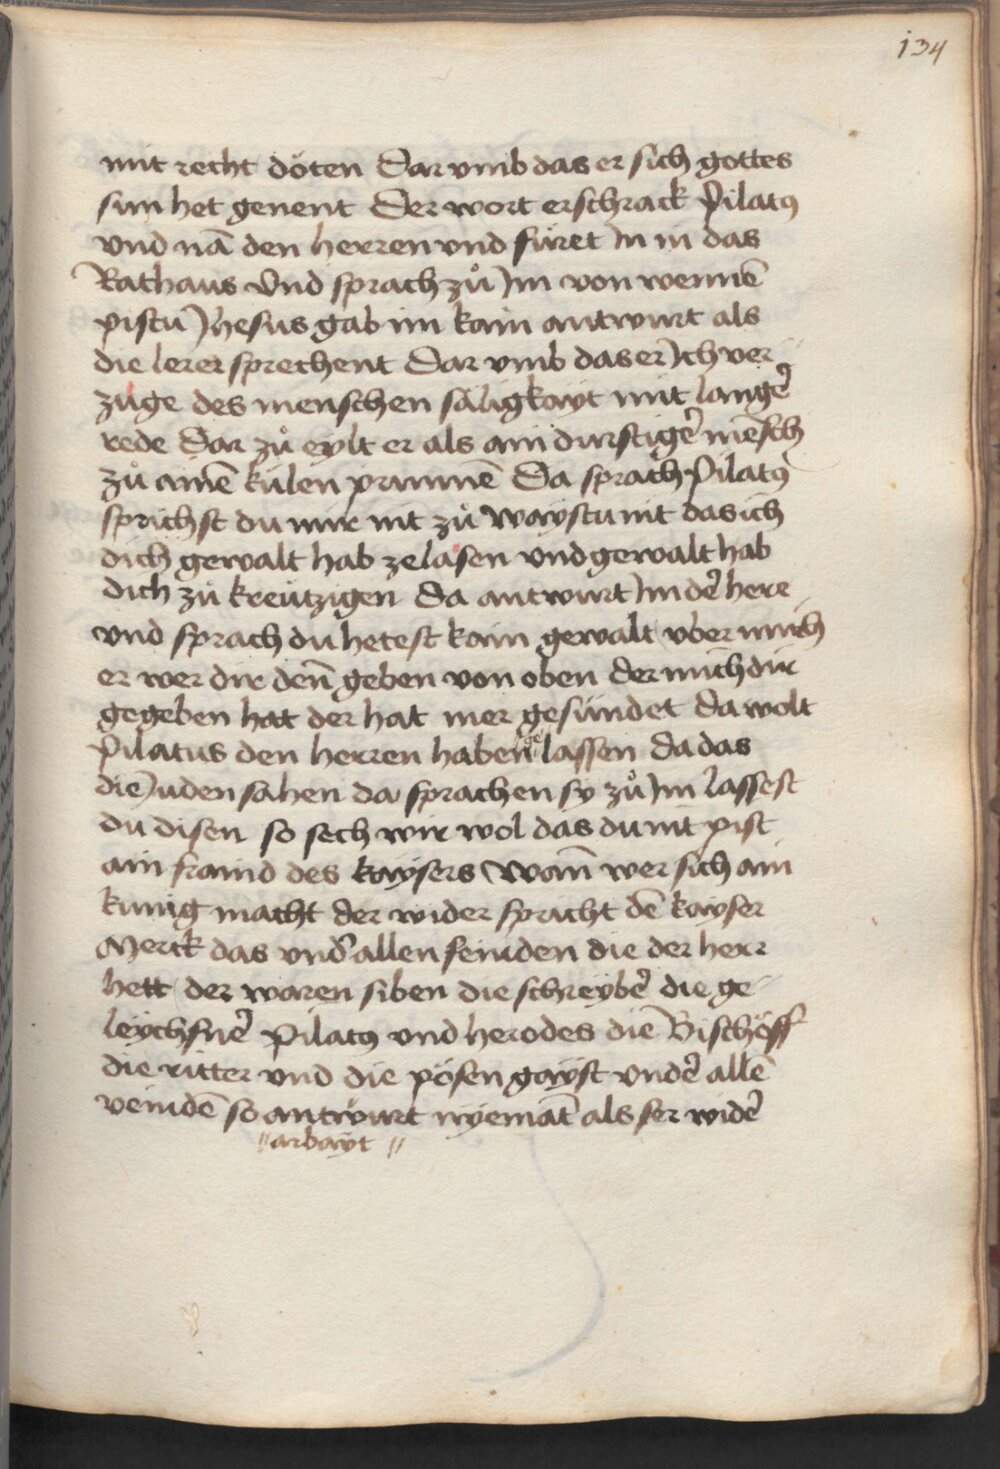 134
mit recht döten Dar vmb das er sich gottes
sun het genent Der wort erschrack Pilatꝯ
vnd nā den herren vnd füret Jn in das
Rathaus Vnd sprach zů Jm von wennē
pistu Jhesus gab im kain antwurt als
die lerer sprechent Dar vmb das er Jch ver
züge des menschen säligkayt mit langeͤ
rede Dar zů eylt er als ain durstigeͤ mēsch
zů ainē külen prunnē Da sprach Pilatꝯ
sprichst du mir nit zů waystu nit das ich
dich gewalt hab ze lasen vnd gewalt hab
dich zü kreützigen Da antwurt Jm deͤ here
vnd sprach du hetest kain gewalt vber mich
er wer dir den̄ geben von oben der mich dir
gegeben hat der hat mer gesündet da wolt
Pilatus den herren haben ge lassen da das
die Juden sahen da sprachen sy zů Jm lassest
du disen so sech wir wol das du nit pist
ain fraind des kaysers Wan̄ wer sich ain
kunig macht der wider spricht dē kayser
Merck das vndͤ allen feinden die der herr
hett der waren siben die schreybeͤ die ge
leychsneͤ Pilatꝯ vnd herodes die Bischöff
die ritter vnd die pösen gayst vndeͤ allē
veindē so antwurt nyemāt als ser wideͤ
〃arbayt〃